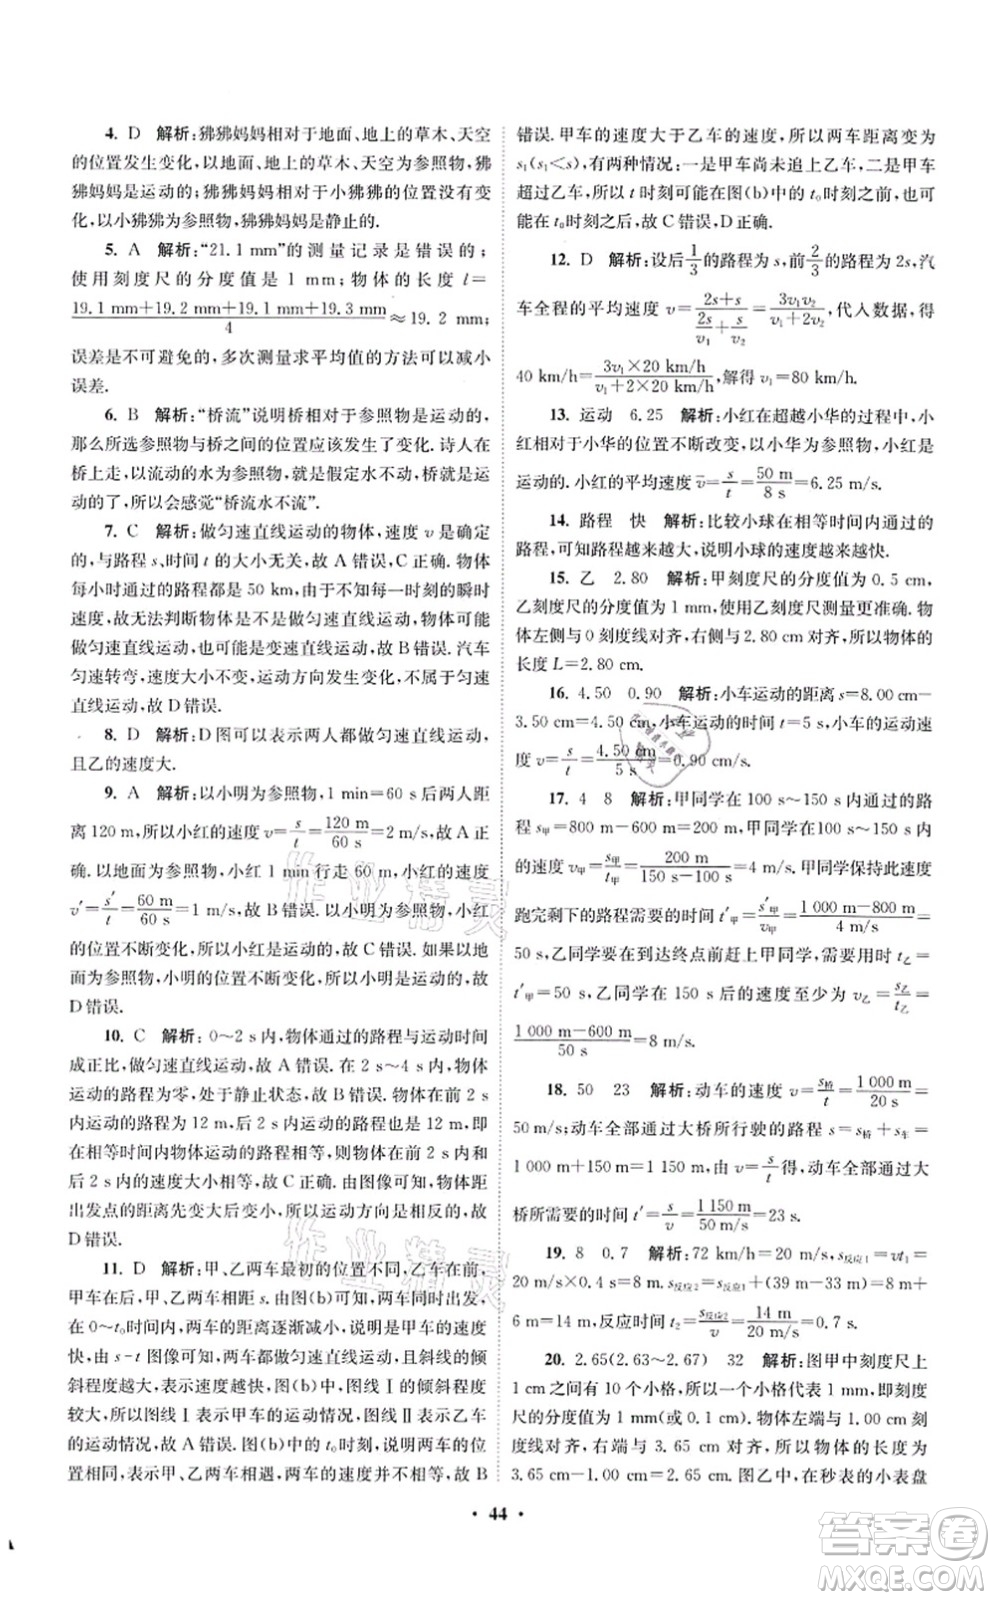 4. D 解析:狒狒妈妈相对于地面、地上的草木、天空
的位置发生变化,以地面、地上的草木、天空为参照物,狒
狒妈妈是运动的;狒狒妈妈相对于小狒狒的位置没有变
化,以小狒狒为参照物,狒狒妈妈是静止的.
5. A 解析:“21.1 mm”的测量记录是错误的;
使用刻度尺的分度值是 1 mm;物体的长度 l=
(19.1 mm+19.2 mm+19.1 mm+19.3 mm)/4≈19.2 mm;
误差是不可避免的,多次测量求平均值的方法可以减小
误差.
6. B 解析:“桥流”说明桥相对于参照物是运动的,
那么所选参照物与桥之间的位置应该发生了变化,诗人在
桥上走,以流动的水为参照物,就是假定水不动,桥就是运
动的了,所以会感觉“桥流水不流”.
7. C 解析:做匀速直线运动的物体,速度 v 是确定
的,与路程 s、时间 t 的大小无关,故 A 错误,C 正确.物体
每小时通过的路程都是 50 km,但是不知道物体的瞬时
速度,故无法判断物体是不是做匀速直线运动,可能是
做匀速直线运动,也可能是变速直线运动,故 B 错误.汽车
匀速转弯,虽然速度不变,但是方向改变了,不属于匀速
直线运动,故 D 错误.
8. D 解析:D 图可以表示两人都做匀速直线运动,
且乙的速度大.
9. A 解析:以小明为参照物,1 min=60 s 后两人距
离 120 m,所以小红的速度 v=s/t=120 m/60 s=2 m/s,故 A
正确.以地面为参照物,小红 1 min 行走路程 60 m,则
v′=s′/t=60 m/60 s=1 m/s,故 B 错误.以小明为参照物,小红
的位置不断变化,所以小红是运动的,故 C 错误.如果以地
面为参照物,小明的位置不断变化,所以小明是运动的,故
D 错误.
10. C 解析:0~2 s 内,物体通过的路程与运动时间
成正比,做匀速直线运动,故 A 错误.在 2 s~4 s 内,物体
运动的路程为零,处于静止状态,故 B 错误.物体在前 2 s
内运动的路程为 12 m,后 2 s 内运动的路程也为 12 m,即
在相等时间内物体运动的路程相等,则物体前 2 s 的速度
与后 2 s 的速度大小相等,故 C 正确.由图像可知,物体距
出发点的距离先变大后变小,所以运动方向是相反的,故
D 错误.
11. D 解析:甲、乙两车最初的位置不同,乙车在前,
甲车在后,甲、乙两车相距 s.由图(b)可知,两车同时出发,
在 0~t₀时间内,两车的距离逐渐减小,说明是甲车的速度
快,由 s-t 图像可知,两车做匀速直线运动,且斜线的倾斜
程度越大,说明速度越大,由图(a)可知,图线Ⅰ的倾斜程度
较大,所以图线Ⅰ表示甲车的运动情况,图线Ⅱ表示乙车
的运动情况,所以 A 错误.图(b)中的 t₀时刻,说明两车的距
离是 0,表示甲、乙两车相遇,两车的速度不可能相等,故 B
错误.甲车的速度大于乙车的速度,所以两车距离变为
s₁(s₁<s),有两种情况:一是甲车尚未追上乙车,二是甲车
超过乙车,所以 t 时刻可能在图(b)中的 t₀时刻之前,也可
能在 t₀时刻之后,故 C 错误,D 正确.
12. D 解析:设后1/3的路程为 s,前2/3的路程为 2s,汽
车全程的平均速度 v=(2s+s)/(2s/v₁+s/v₂)=3v₁v₂/(v₁+2v₂),代入数据,得
40 km/h=(3v₁×20 km/h)/(v₁+2×20 km/h),解得 v₁=80 km/h.
13. 运动 6.25 解析:小红在超越小华的过程中,小
红相对于小华的位置不断改变,以小华为参照物,小红是
运动的.小红的平均速度 v̄=s/t=50 m/8 s=6.25 m/s.
14. 路程 快 解析:比较小球在相等时间内通过的
路程,可知路程越来越大,说明小球的速度越来越快.
15. 乙 2.80 解析:甲刻度尺的分度值为 0.5 cm,
乙刻度尺的分度值为 1 mm,使用乙刻度尺测量更准确.物
体左侧与 0 刻度线对齐,右侧与 2.80 cm 对齐,所以物体的
长度 L=2.80 cm.
16. 4.50 0.90 解析:小车运动的距离 s=8.00 cm-
3.50 cm=4.50 cm,小车运动的时间 t=5 s,小车的运动速
度 v=s/t=4.50 cm/5 s=0.90 cm/s.
17. 4 8 解析:甲同学在 100 s~150 s 内通过的路
程 s甲=800 m-600 m=200 m,甲同学在 100 s~150 s 内
的速度 v甲=s甲/t甲=200 m/(150 s-100 s)=4 m/s,甲同学保持此速度
跑完剩下的路程需要的时间 t′甲=s′甲/v甲=(1 000 m-800 m)/(4 m/s)=
50 s,乙同学要在到达终点前赶上甲同学,需要时间 t乙=
t′甲=50 s,则乙同学在 150 s 后的速度至少为 v乙=s乙/t乙=
(1 000 m-600 m)/50 s=8 m/s.
18. 50 23 解析:动车的速度 v=s桥/t=1 000 m/20 s=
50 m/s,动车全部通过大桥所行驶的路程 s=s桥+s车=
1 000 m+150 m=1 150 m,由 v=s/t得,动车全部通过大
桥所需要的时间 t′=s/v=1 150 m/(50 m/s)=23 s.
19. 8 0.7 解析:72 km/h=20 m/s,s反应1=vt₁=
20 m/s×0.4 s=8 m,s反应2=s反应1+(39 m-33 m)=8 m+
6 m=14 m,反应时间 t₂=s反应2/v=14 m/(20 m/s)=0.7 s.
20. 2.65(2.63~2.67) 32 解析:图甲中刻度尺上
1 cm 之间有 10 个小格,所以一个小格代表 1 mm,即刻度
尺的分度值为 1 mm(或 0.1 cm).物体左端与 1.00 cm 刻
度线对齐,右端与 3.65 cm 对齐,所以物体的长度为
3.65 cm-1.00 cm=2.65 cm.图乙中,在秒表的小表盘
• 44 •
作业精灵
作业精灵
答案卷
MXQE.COM